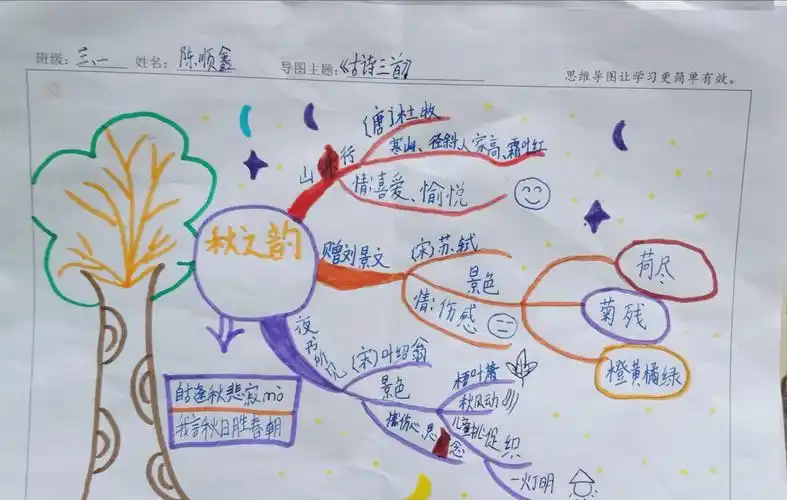 班级：三、一 姓名：陈顺鑫 导图主题：《古诗三首》 思维导图让学习更简单有效。
秋之韵
山行
(唐)杜牧
寒山、径斜、人家高、霜叶红
情:喜爱、愉悦
赠刘景文
(宋)苏轼
景色
情:伤感
荷尽
菊残
橙黄橘绿
夜书所见
(宋)叶绍翁
景色
梧叶萧
秋风动
儿童挑促织
一灯明
情伤心、思念
自古逢秋悲寂mò
我言秋日胜春朝